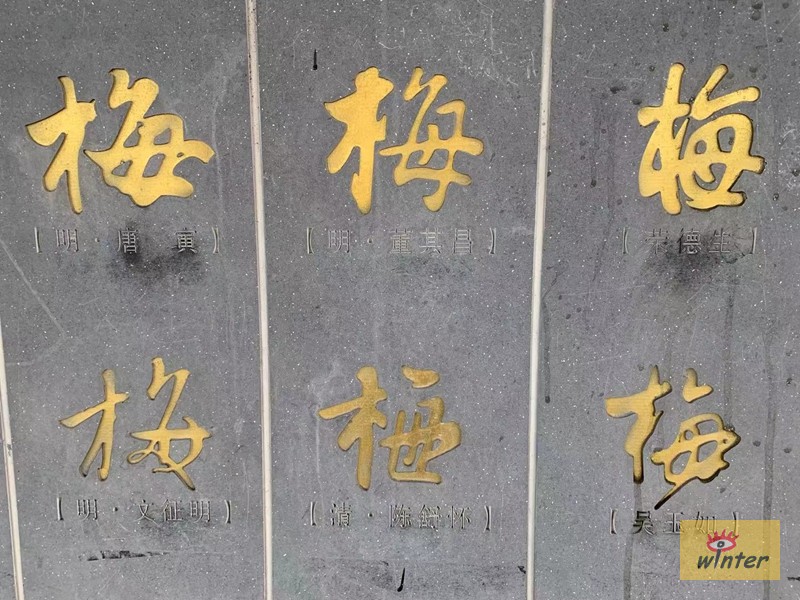 梅 梅 梅
【明·唐 寅】 【明·董其昌】 【 德生】
梅 梅 梅
【明·文征明】 【清·陈 怀】 【吴玉如】
winter